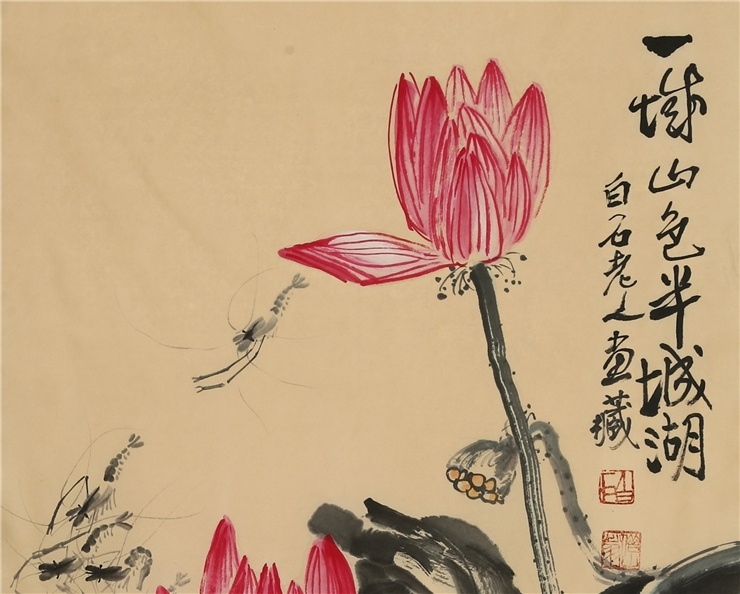 一城山色半城湖
白石老人画藏